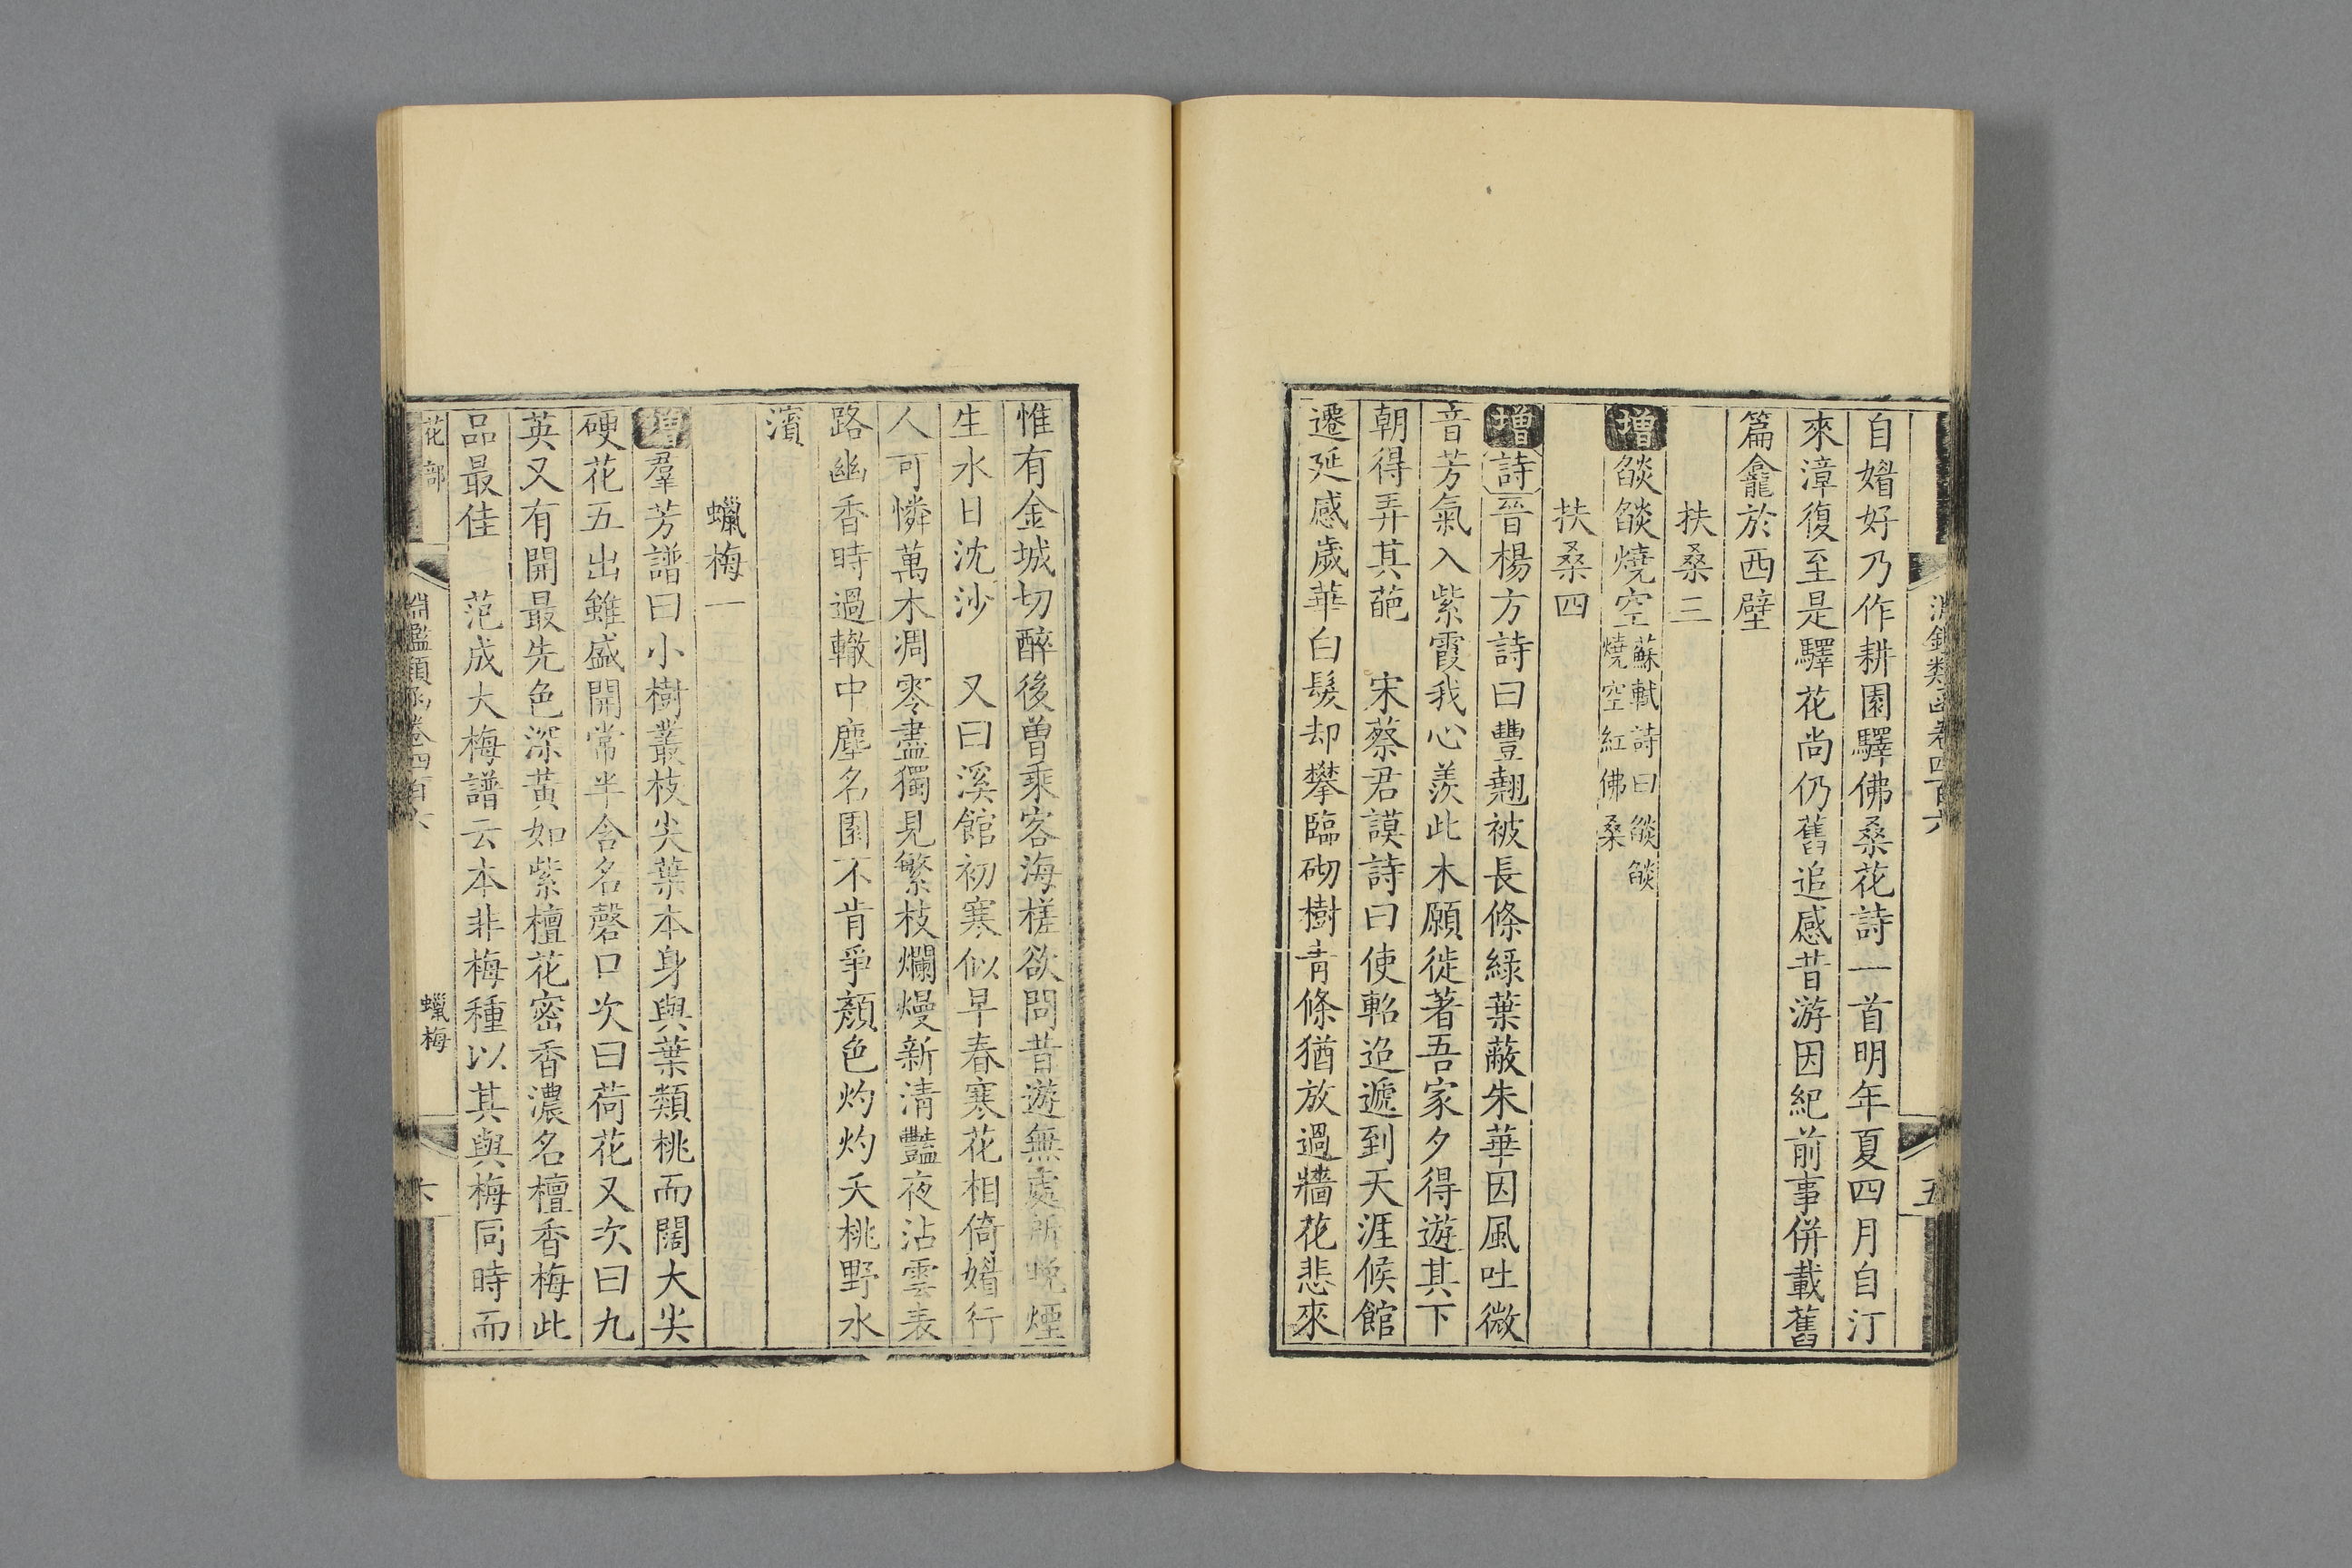 淵鑑類函卷四百六
五
自媚好乃作耕園驛佛桑花詩一首明年夏四月自汀
來漳復至是驛花尚仍舊追感昔游因紀前事併載舊
篇龕於西壁
扶桑三
增燄燄燒空蘇軾詩曰燄燄
燒空紅佛桑
扶桑四
增詩晉楊方詩曰豐翹被長條綠葉蔽朱華因風吐微
音芳氣入紫霞我心羨此木願徙著吾家夕得遊其下
朝得弄其葩　宋蔡君謨詩曰使軺迢遞到天涯候館
遷延感歲華白髮却攀臨砌樹青條猶放過牆花悲來
惟有金城切醉後曾乘客海槎欲問昔遊無處所晚煙
生水日沈沙　又曰溪館初寒似早春寒花相倚媚行
人可憐萬木凋零盡獨見繁枝爛熳新清豔夜沾雲表
路幽香時過轍中塵名園不肯爭顏色灼灼夭桃野水
濱
蠟梅一
增羣芳譜曰小樹叢枝尖葉本身與葉類桃而闊大尖
硬花五出雖盛開常半含名磬口次曰荷花又次曰九
英又有開最先色深黃如紫檀花密香濃名檀香梅此
品最佳　范成大梅譜云本非梅種以其與梅同時而
花部
淵鑑類函卷四百六
蠟梅
六